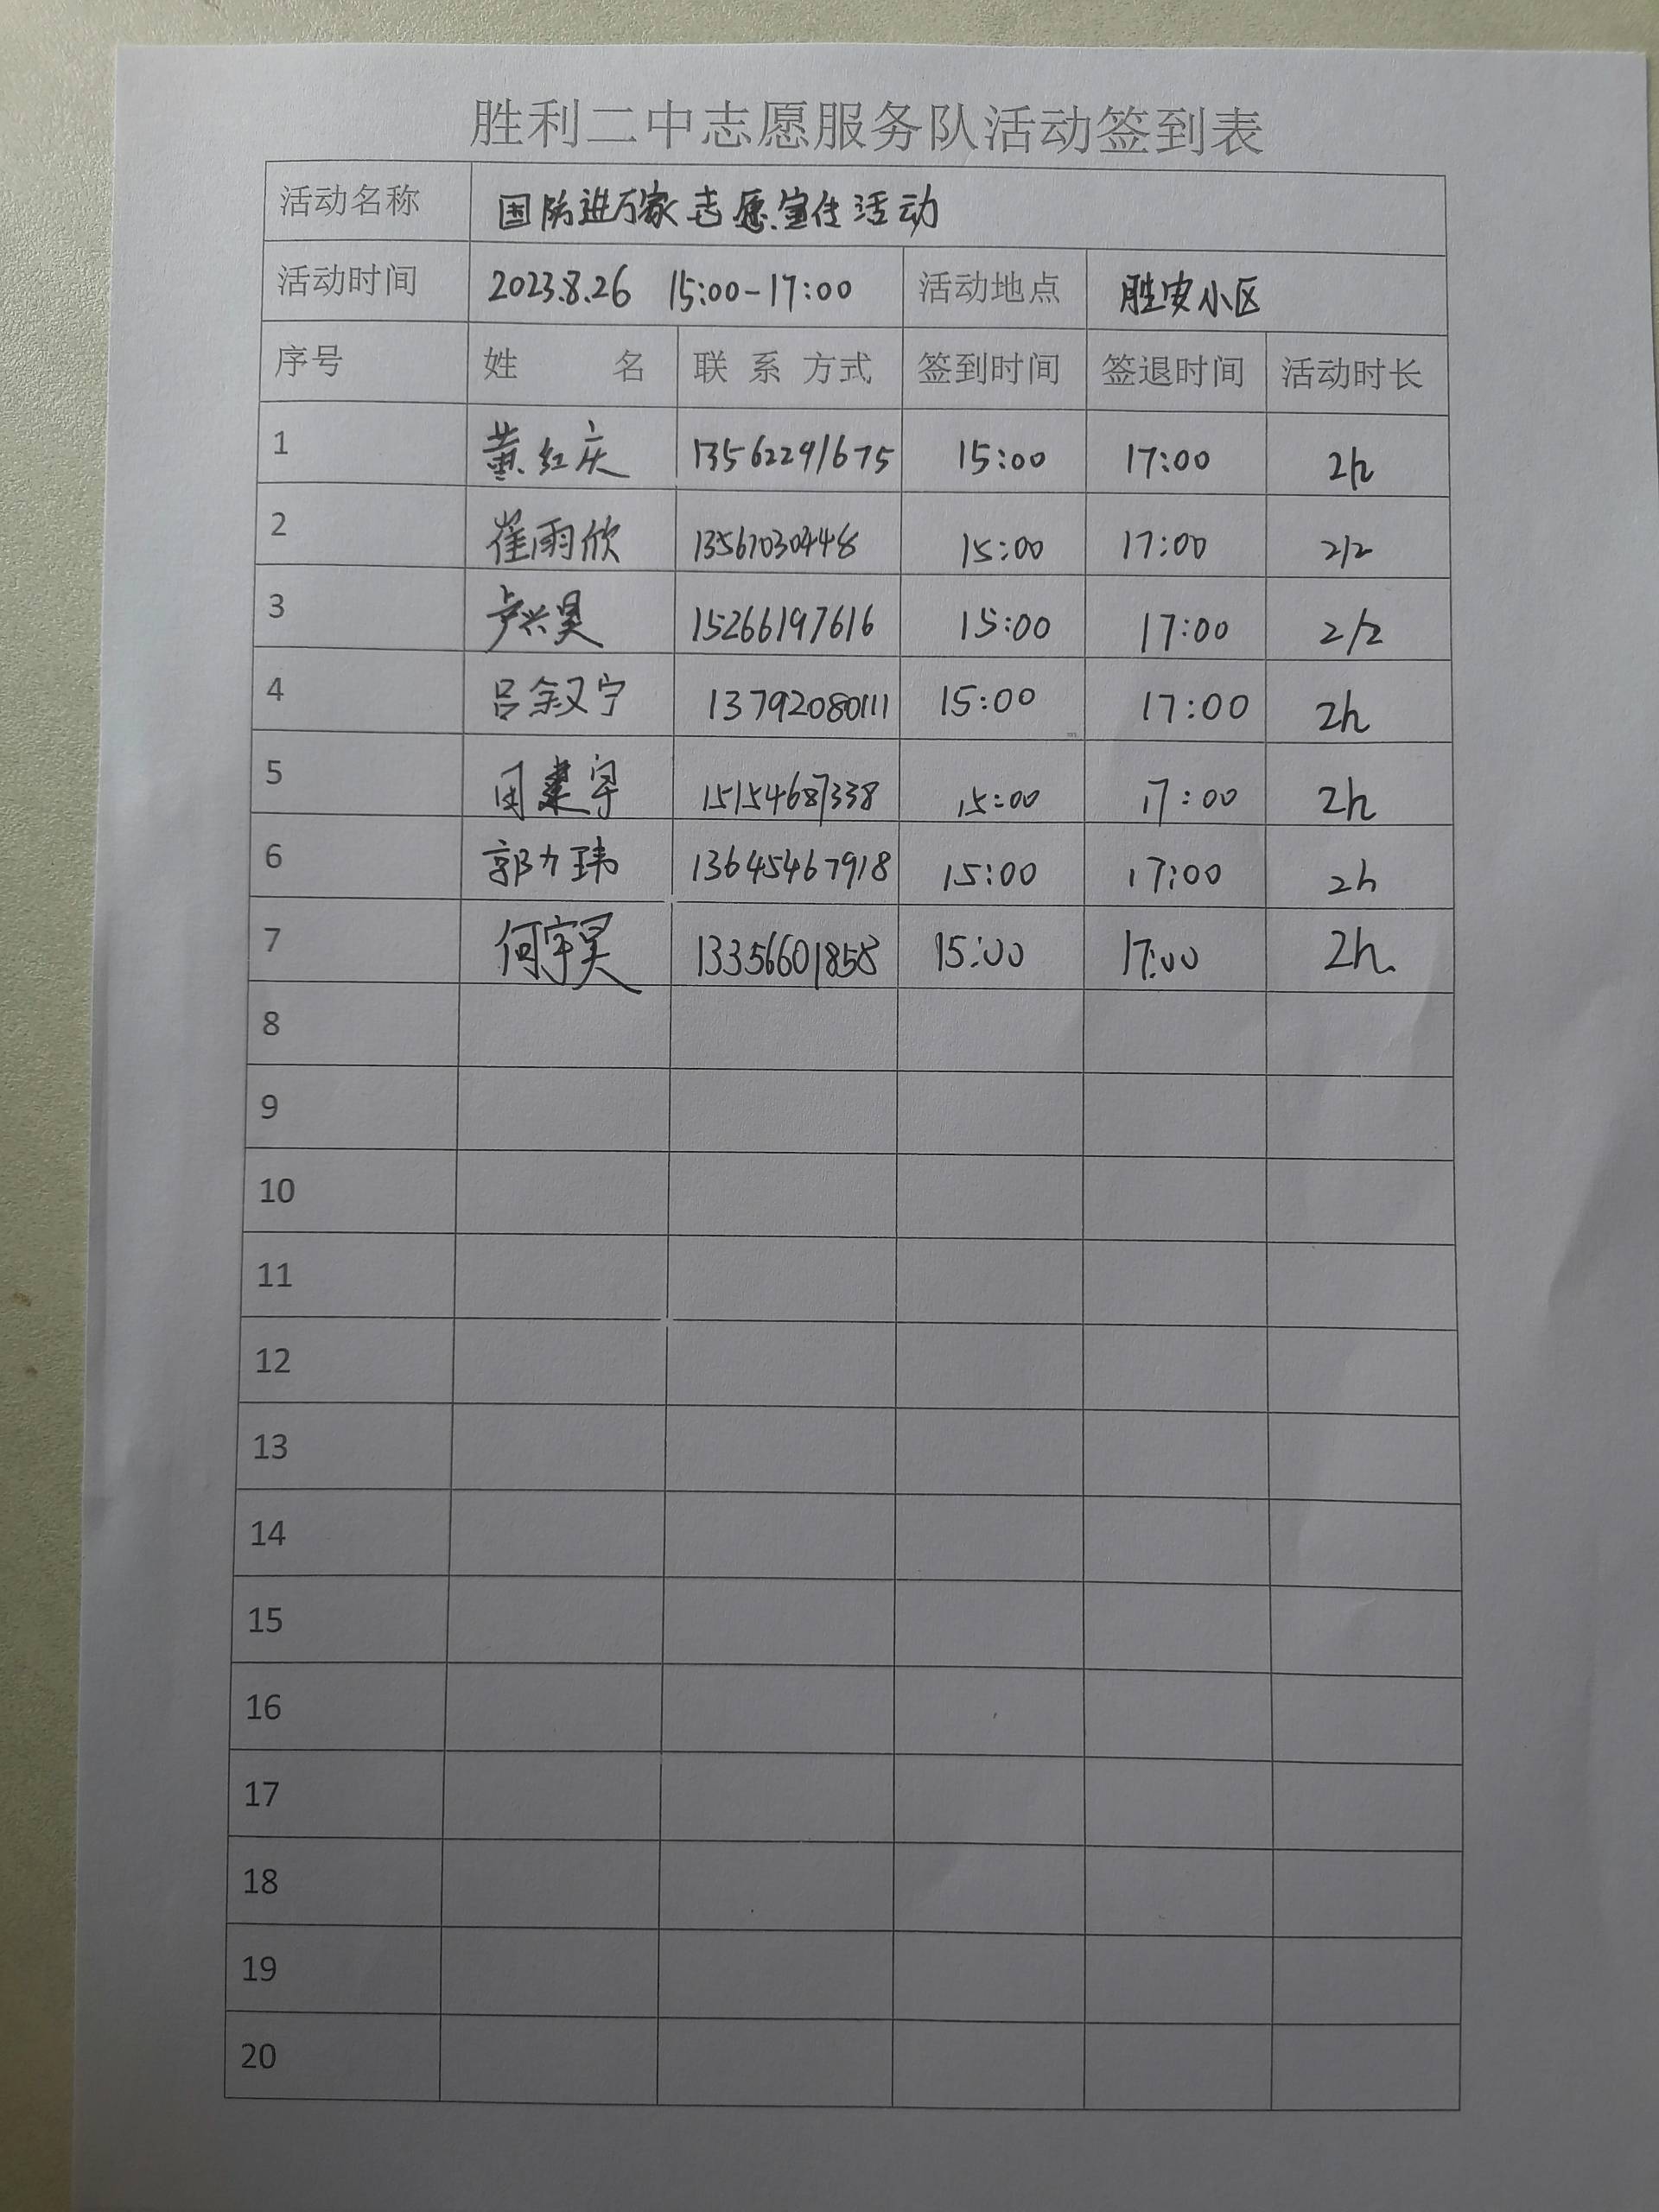 胜利二中志愿服务队活动签到表
活动名称 国防进万家志愿宣传活动
活动时间 2023.8.26 15:00-17:00 活动地点 胜安小区
序号 姓 名 联 系 方式 签到时间 签退时间 活动时长
1 黄红庆 13562291675 15:00 17:00 2h
2 崔雨欣 15:00 17:00 2h
3 卢兴昊 15266197616 15:00 17:00 2h
4 吕叙宁 13792080111 15:00 17:00 2h
5 宇 15154687338 15:00 17:00 2h
6 郭力玮 13645467918 15:00 17:00 2h
7 何宇昊 13356601858 15:00 17:00 2h.
8
9
10
11
12
13
14
15
16
17
18
19
20